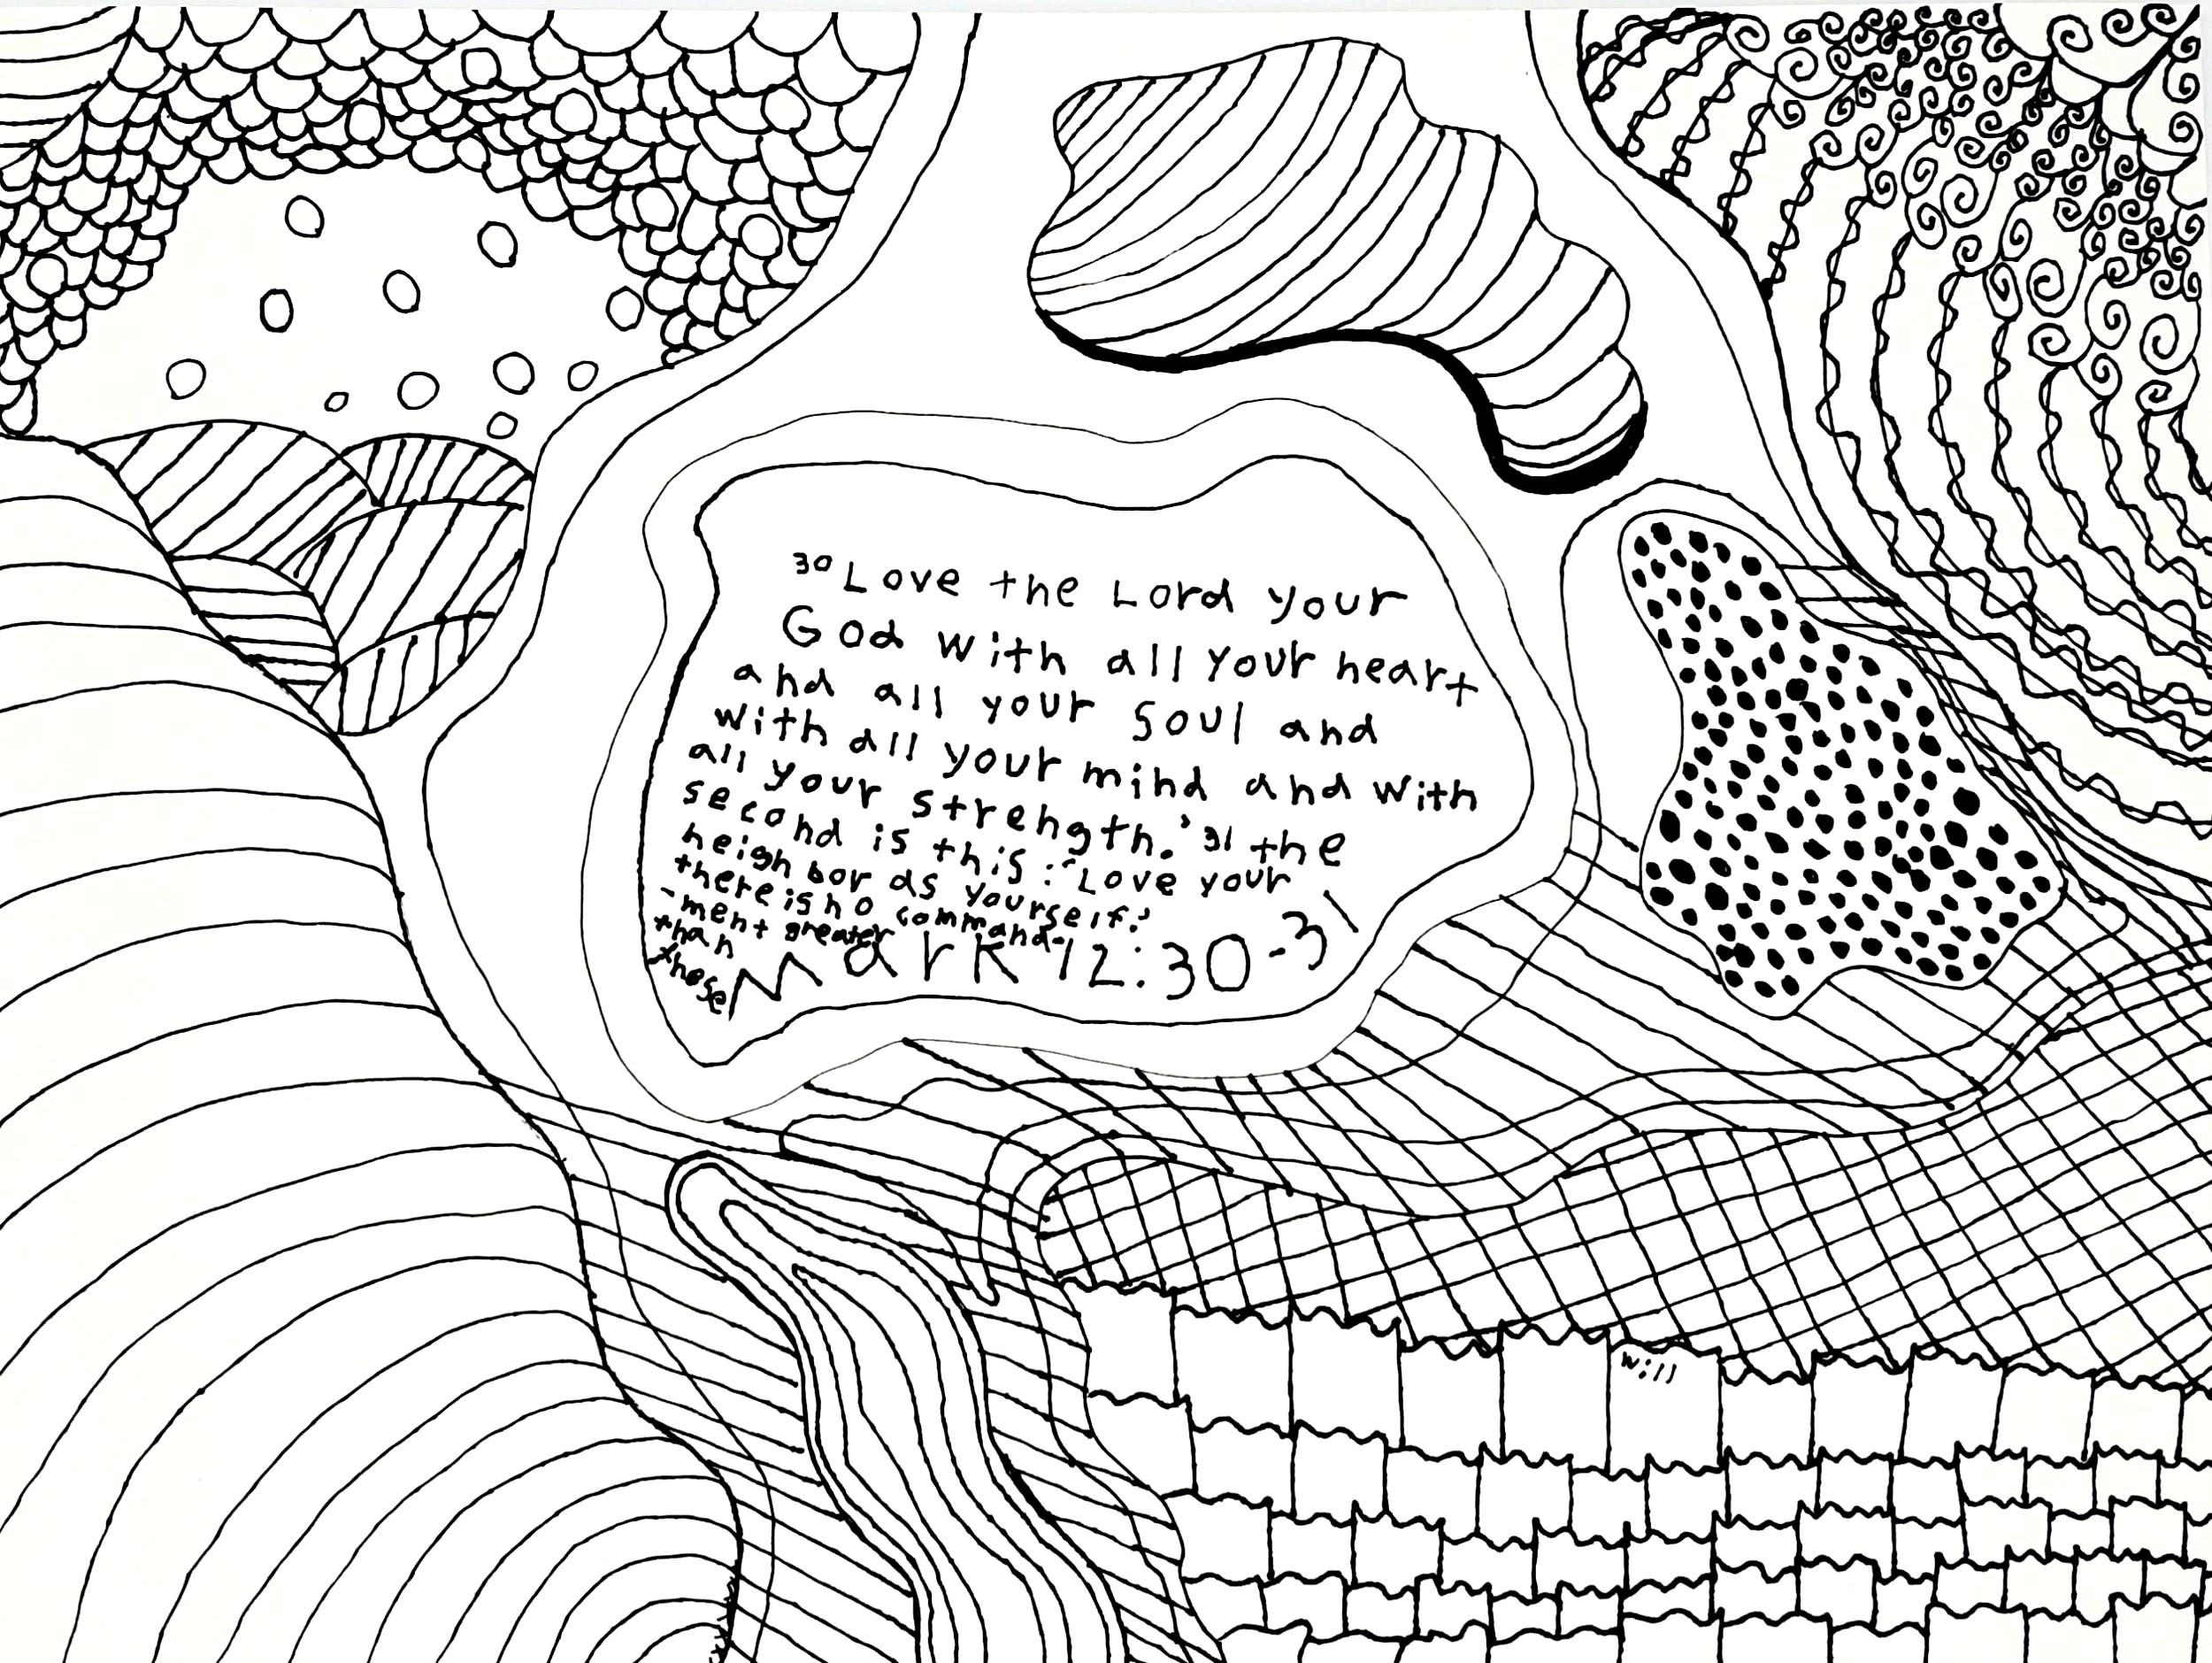 30 Love the Lord your
God with all your heart
and all your soul and
with all your mind and with
all your strength.' 31 the
second is this: 'Love your
neighbor as yourself.'
there is no command-
-ment greater
than
these
Mark 12:30-31
will